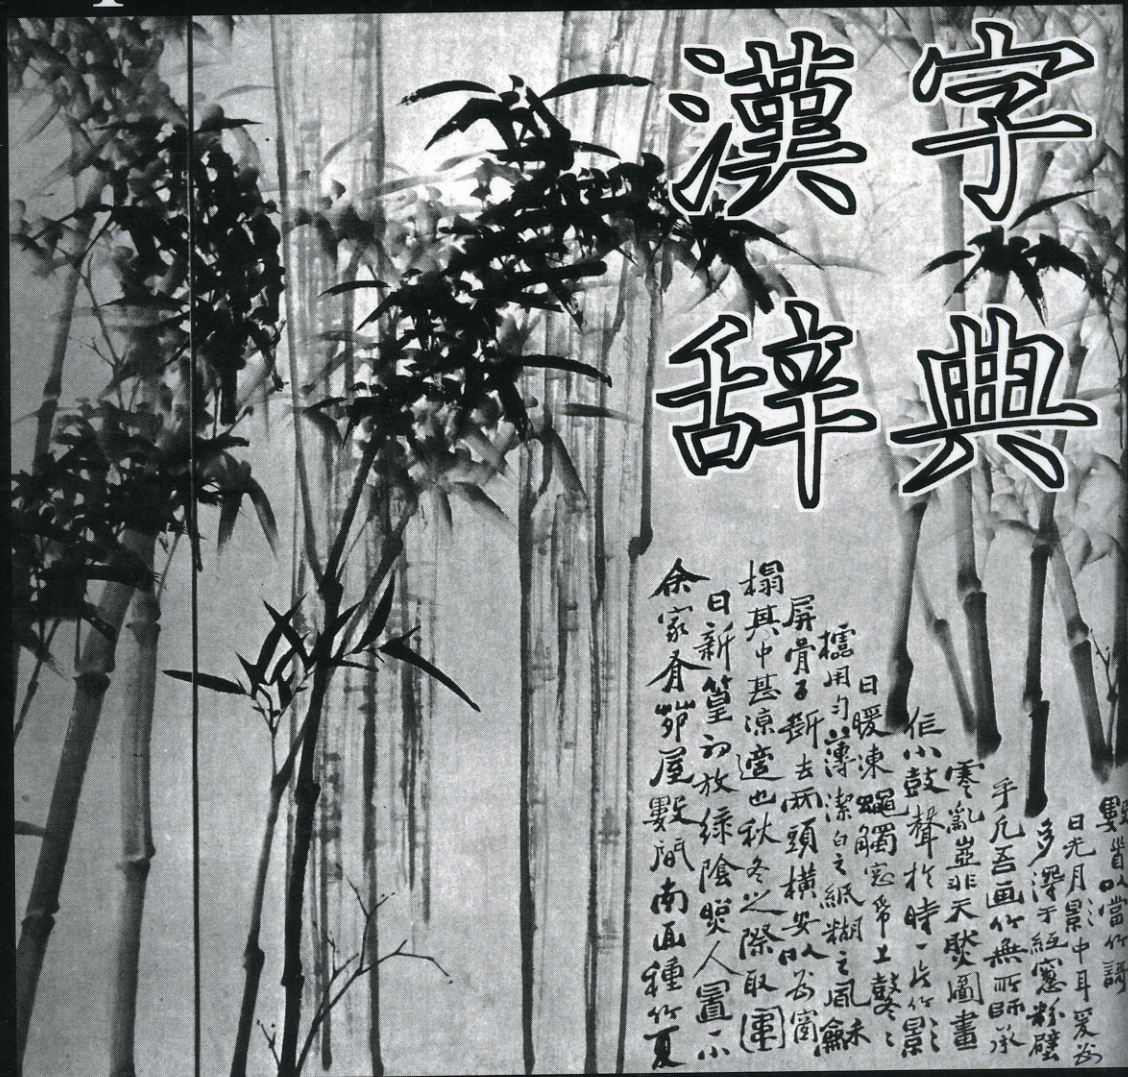 漢字
辞典
余家有茆屋數間南面種竹夏
日新篁初放綠陰照人置一小
榻其中甚涼適也秋冬之際取圍
屏骨子斷去兩頭橫安以為窗
櫺用匀薄潔白之紙糊之風龢
日暖凍蠅觸窓帋上鼕々
作小鼓聲於時一片竹影
零亂豈非天然圖畫
乎凡吾画竹無所師承
多得于紙窓粉壁
日光月影中耳爰為
數首以當竹